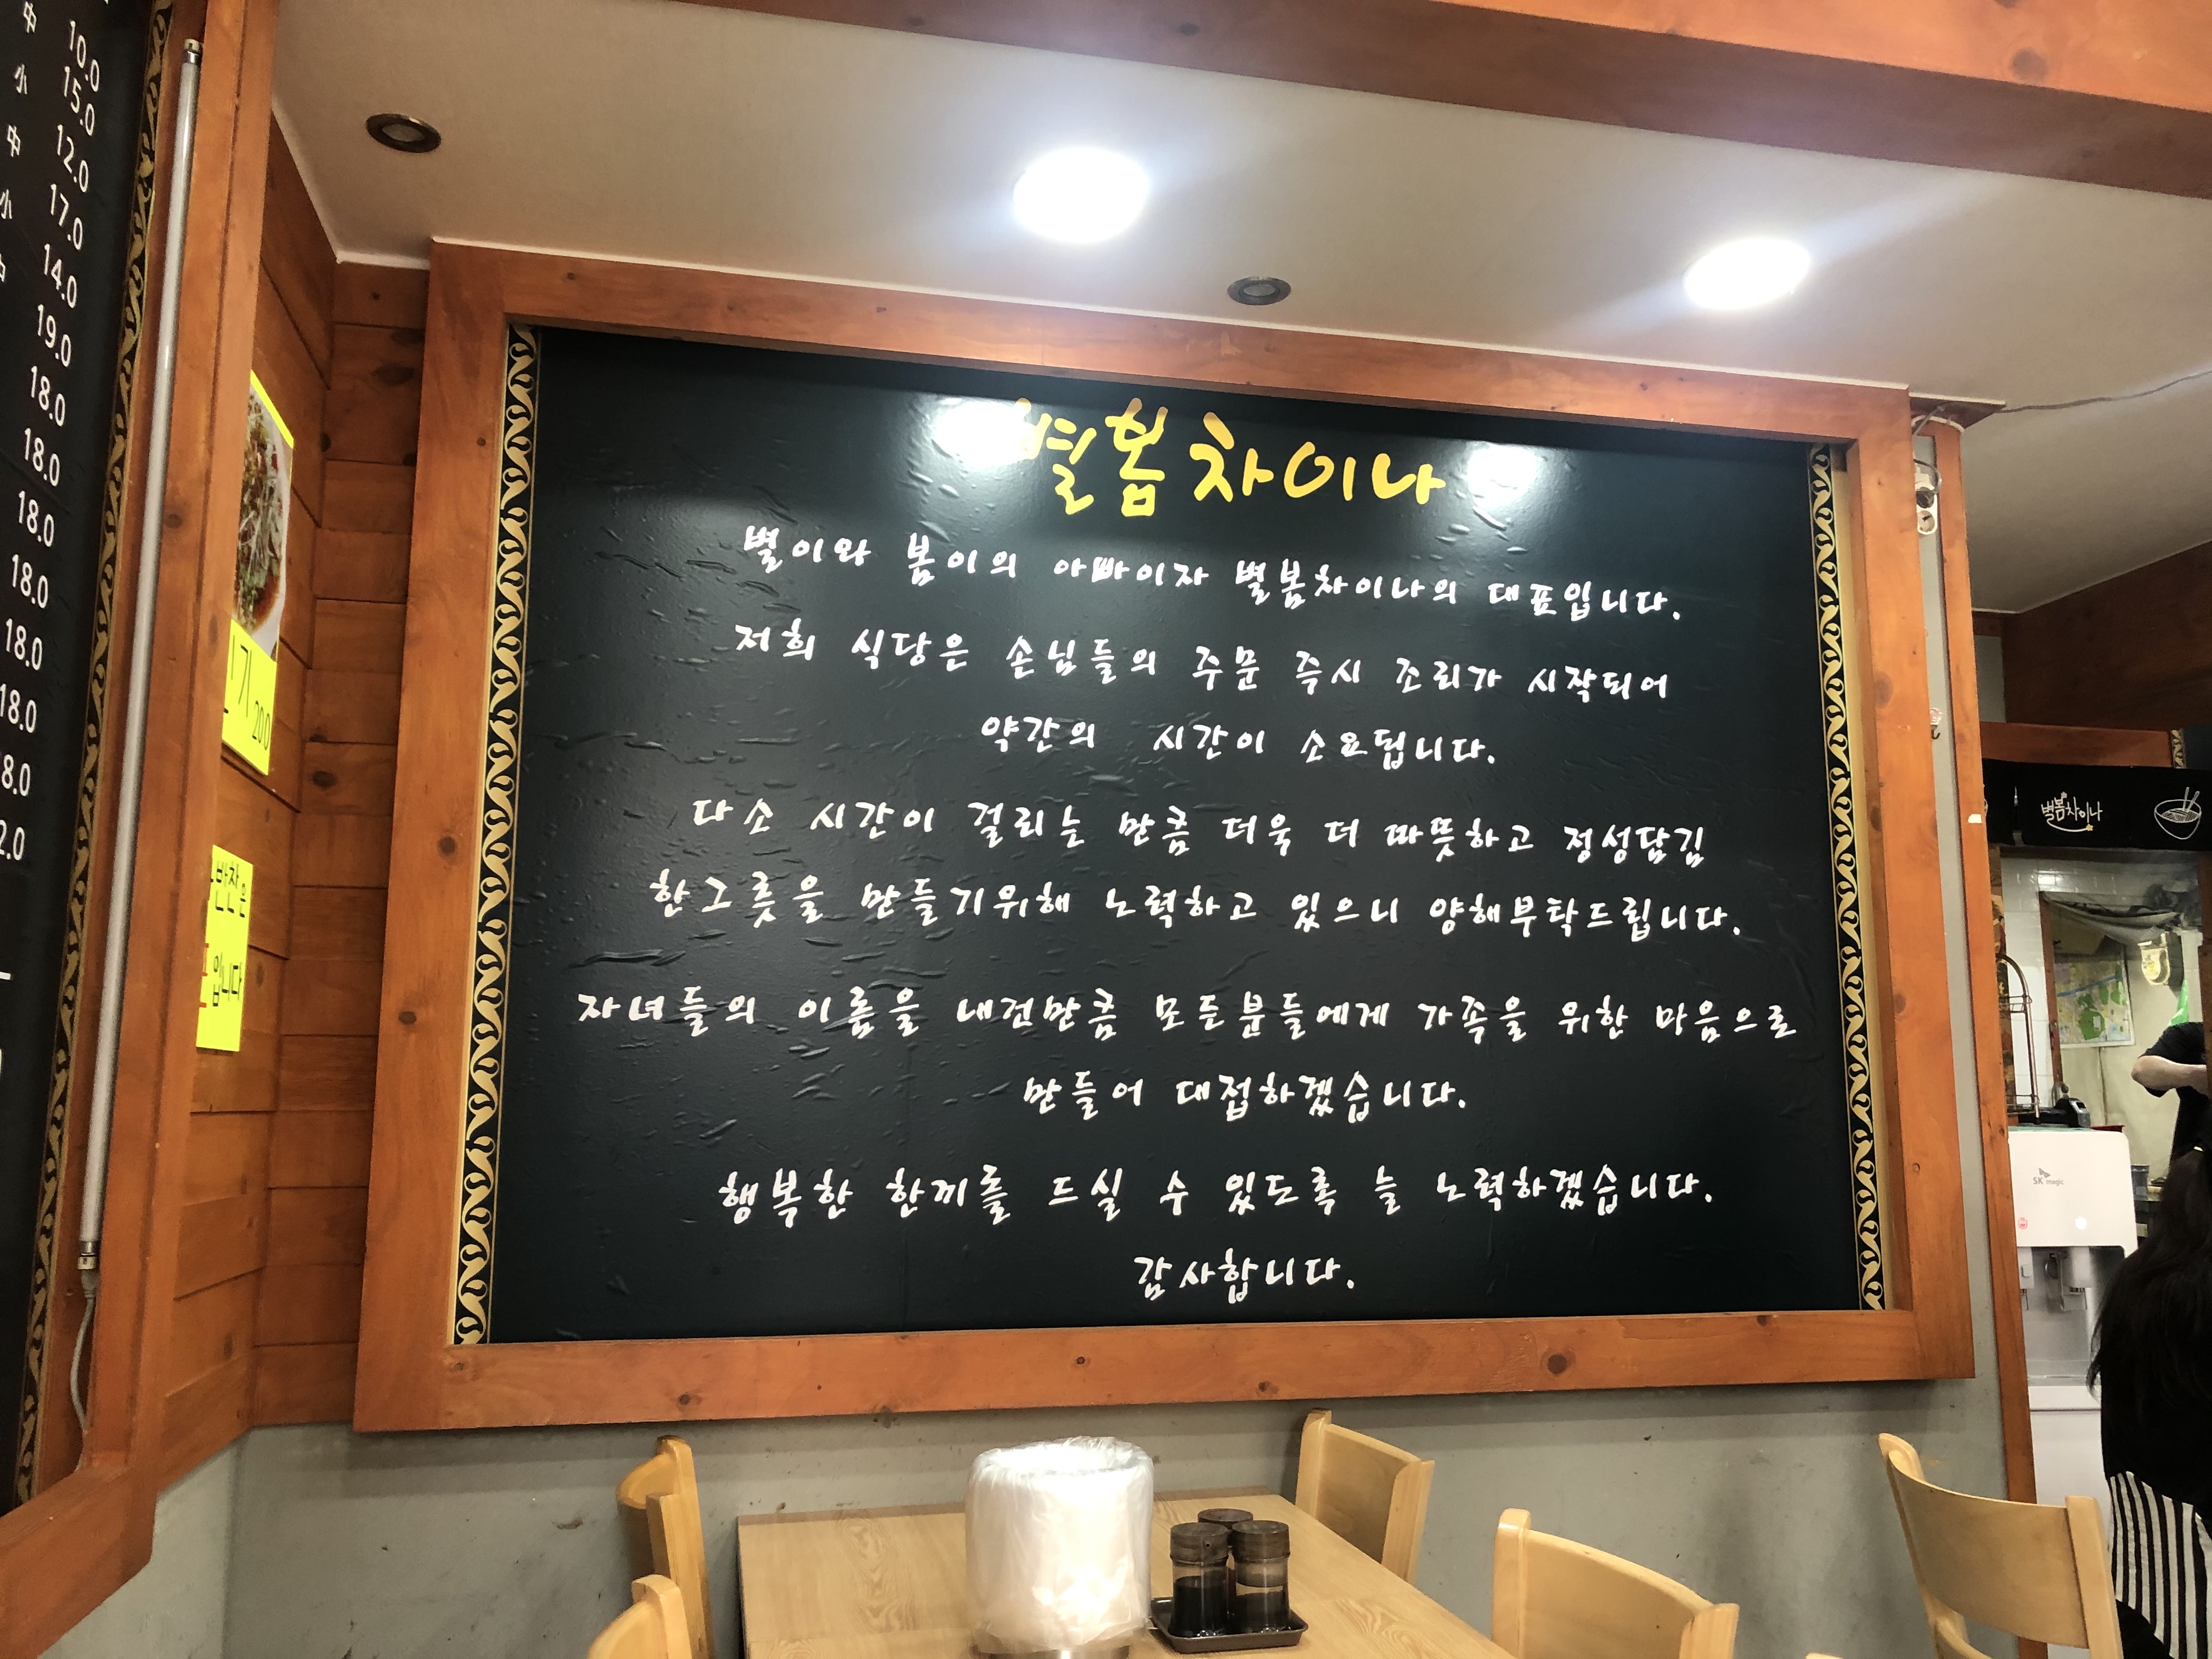 中 10.0
小 15.0
中 12.0
小 17.0
14.0
19.0
18.0
18.0
18.0
18.0
18.0
18.0
8.0
2.0
기 200
반찬은
입니다
별봄차이나
별이와 봄이의 아빠이자 별봄차이나의 대표입니다.
저희 식당은 손님들의 주문 즉시 조리가 시작되어
약간의 시간이 소요됩니다.
다소 시간이 걸리는 만큼 더욱 더 따뜻하고 정성담김
한그릇을 만들기위해 노력하고 있으니 양해부탁드립니다.
자녀들의 이름을 내건만큼 모든분들에게 가족을 위한 마음으로
만들어 대접하겠습니다.
행복한 한끼를 드실 수 있도록 늘 노력하겠습니다.
감사합니다.
별봄차이나
SK magic